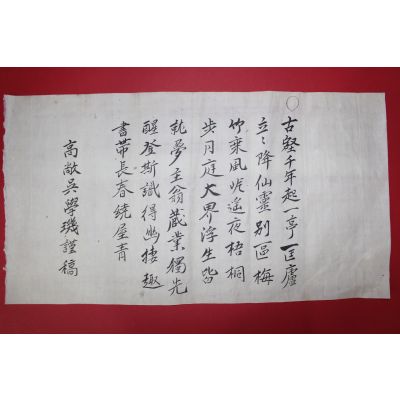 古壑千年起一亭匡廬
立々降仙靈別區梅
竹乘風遙夜梧桐
步月庭大界浮生皆
就夢主翁蔵業獨先
醒登斯識得幽棲趣
書帶長春繞屋青
高敞吳學璣謹稿